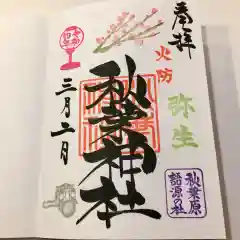 奉拝
火防
弥生
秋葉神社
三月二日
秋葉原
語源の社